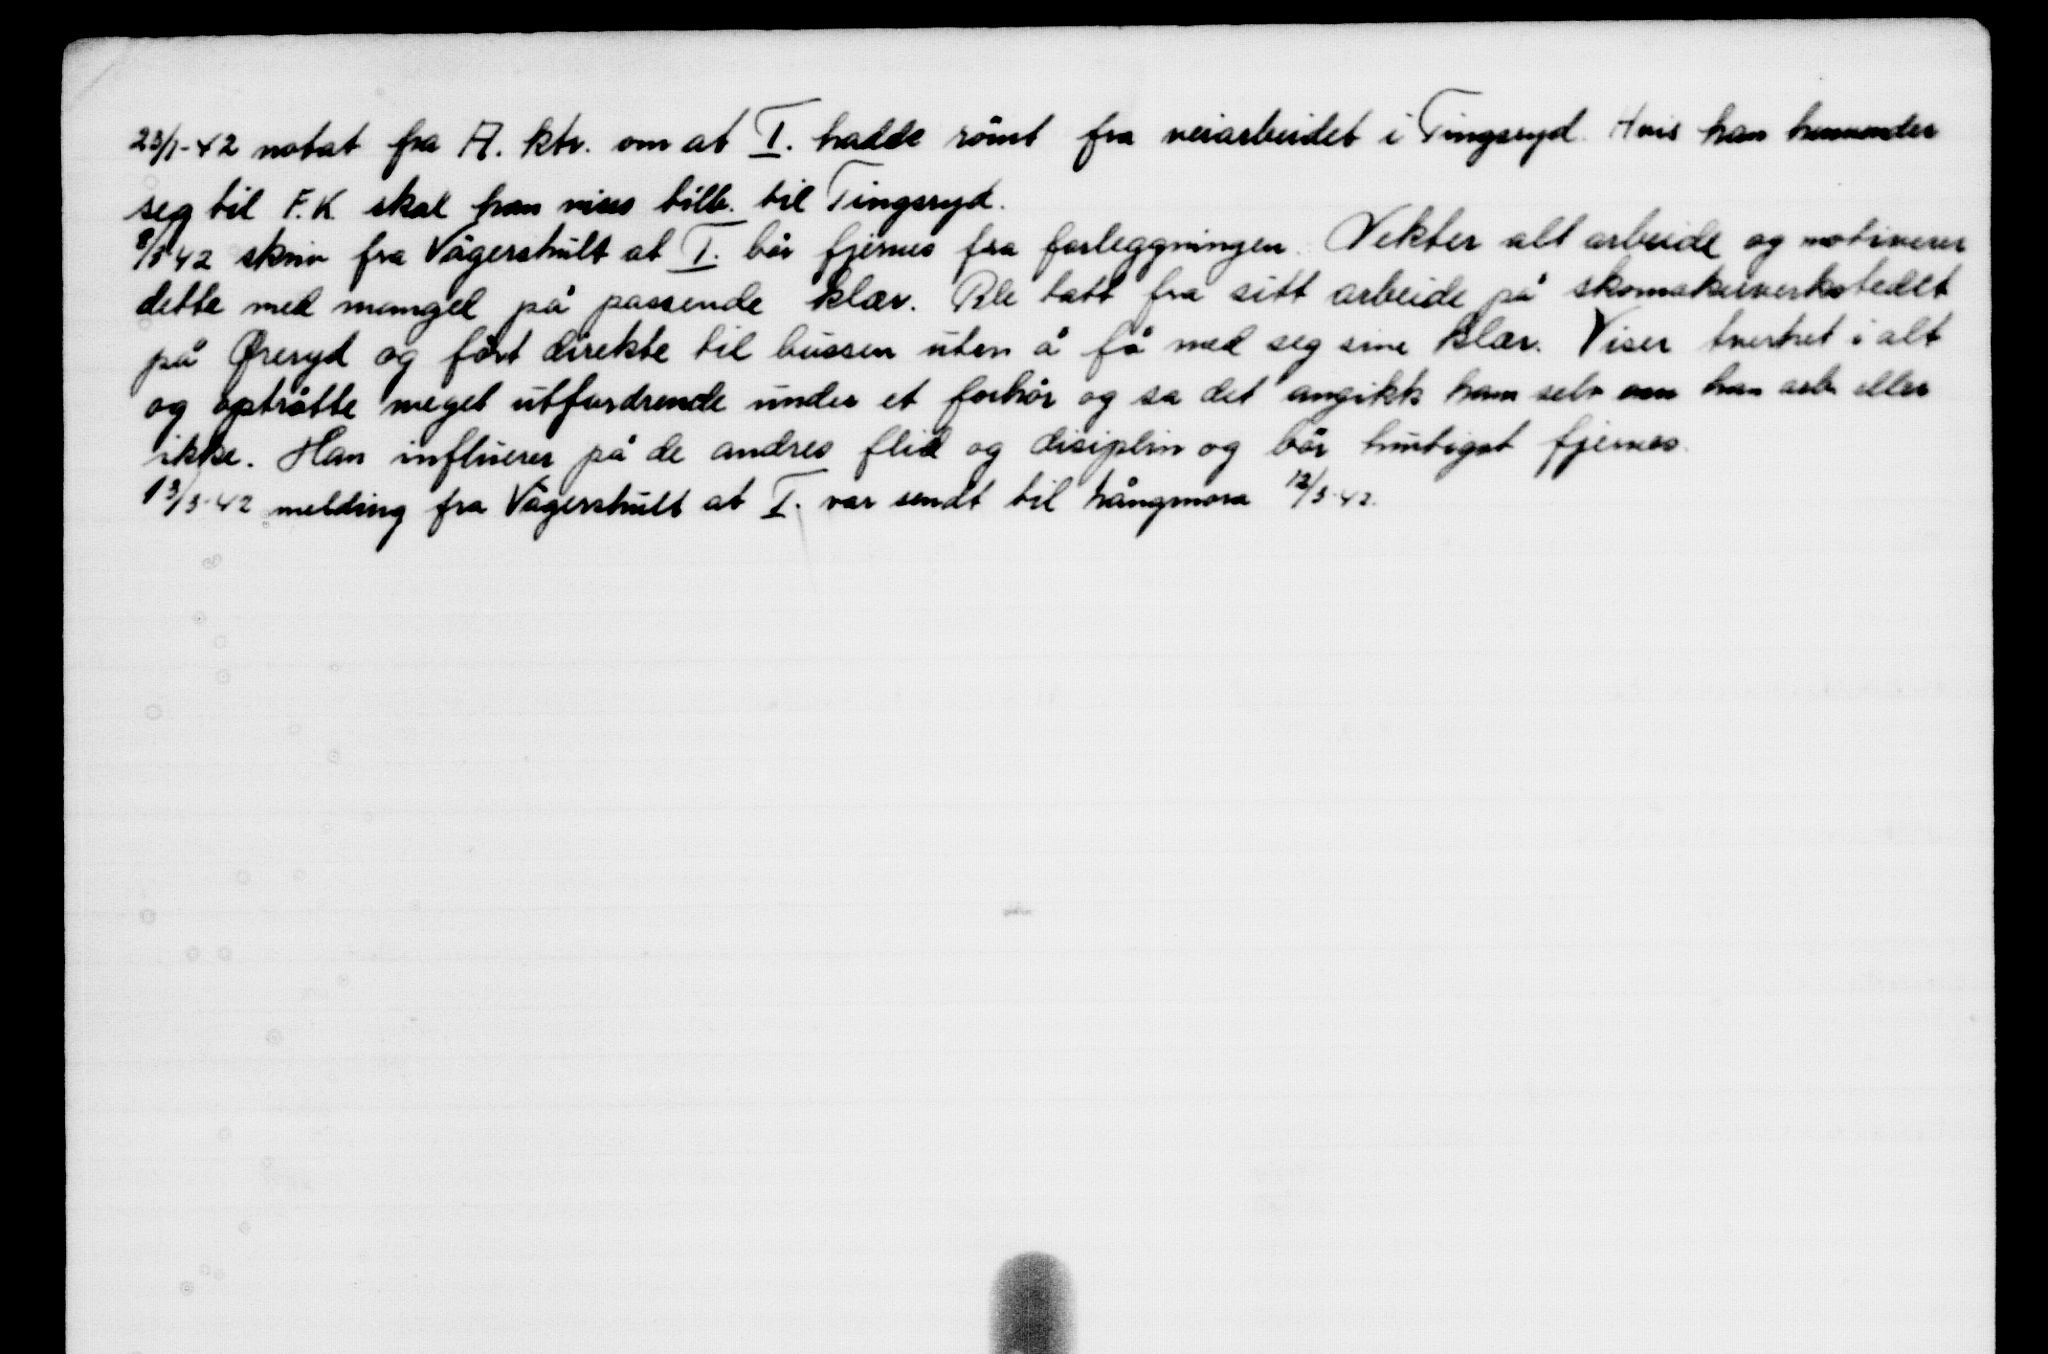 23/1-42 notat fra A. ktr. om at I. hadde römt fra veiarbeidet i Tingsryd. Hvis han henvender
seg til F.K. skal han vises tilb. til Tingsryd.
8/3-42 skriv fra Vägershult at I. bör fjernes fra forleggningen. Nekter alt arbeide og motiverer
dette med mangel på passende klær. Ble tatt fra sitt arbeide på skomakerverkstedet
på Öreryd og fört direkte til bussen uten å få med seg sine klær. Viser tverhet i alt
og optrådte meget utfordrende under et forhör og sa det angikk ham selv om han arb. eller
ikke. Han influerer på de andres flid og disiplin og bör hurtigst fjernes.
13/3-42 melding fra Vägershult at I. var sendt til Långmora 12/3-42.